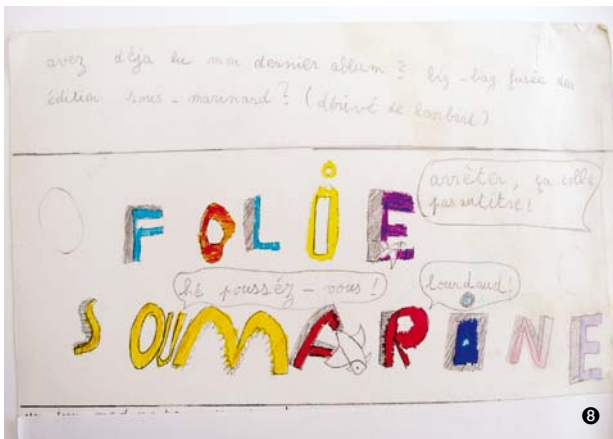 avez déja lu mon dernier ablum? big-bag fusée des
édition sous-marinard? (dérivé de lombard)
FOLiE
arrêter, ça colle
pas au titre!
hé pousséz-vous!
lourdaud!
SOUMARINE
8